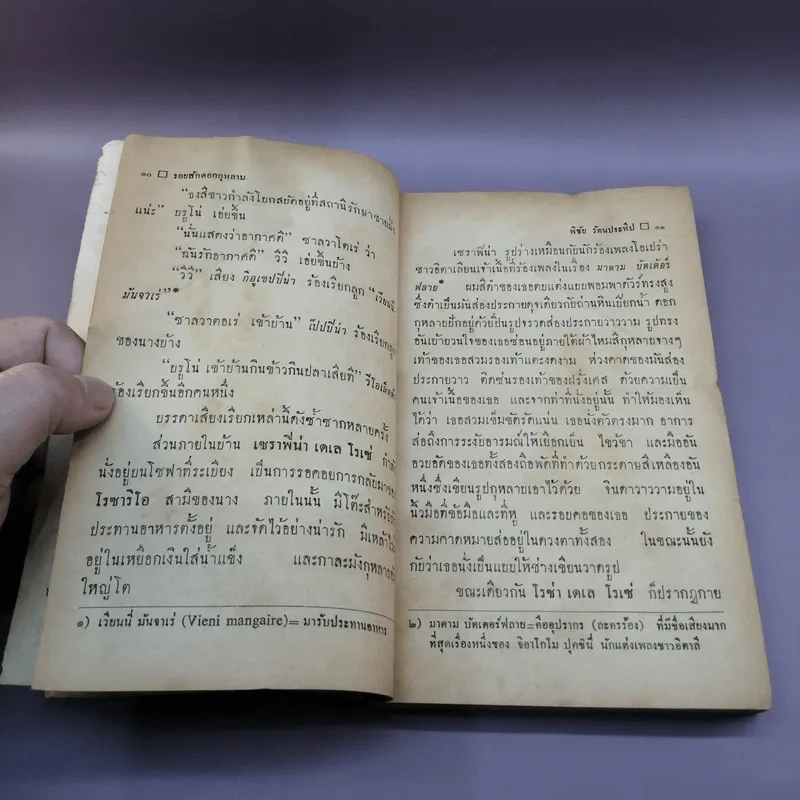 ๑๐ รอยสักดอกกุหลาบ
“ธงสีขาวกำลังโบกสะบัดอยู่ที่สถานีรักษาชายฝั่ง
แน่ะ” บรูโน่ เอ่ยขึ้น
“นั่นแสดงว่าอากาศดี” ซาลวาโตเร่ ว่า
“ฉันรักอากาศดี” วีวี เอ่ยขึ้นบ้าง
“วีวี” เสียง กิอูเซปปีน่า ร้องเรียกลูก “เวียนนี่
มันจาเร่”*
“ซาลวาตอเร่ เข้าบ้าน” เป๊ปปีน่า ร้องเรียกลูก
ของนางบ้าง
“บรูโน่ เข้าบ้านกินข้าวกินปลาเสียที” วีโอเล็ตต้า
ร้องเรียกขึ้นอีกคนหนึ่ง
บรรดาเสียงเรียกเหล่านี้ดังซ้ำซากหลายครั้ง
ส่วนภายในบ้าน เซราฟีน่า เดเล โรเซ่
นั่งอยู่บนโซฟาที่ระเบียง เป็นการรอคอยการกลับมาของ
โรซาริโอ สามีของนาง ภายในนั้น มีโต๊ะสำหรับ
ประทานอาหารตั้งอยู่ และจัดไว้อย่างน่ารัก มีเหล้า
อยู่ในเหยือกเงินใส่น้ำแข็ง และกาละมังกุหลาบ
ใหญ่โต
๑) เวียนนี่ มันจาเร่ (Vieni mangaire) = มารับประทานอาหาร
พิชัย รัตนประทีป ๑๑
เซราฟีน่า รูปร่างเหมือนกับนักร้องเพลงโอเปร่า
ชาวอิตาเลียนเจ้าเนื้อที่ร้องเพลงในเรื่อง มาดาม บัตเต้อร์
ฟลาย* ผมสีดำของเธอตบแต่งแบบพอมพาดัวร์ทรงสูง
ซึ่งดำเป็นมันส่องประกายดุจเดียวกับถ่านหินเปียกน้ำ ดอก
กุหลาบปักอยู่ด้วยปิ่นรูปจรวดส่องประกายวาววาม รูปทรง
อันเย้ายวนใจของเธอซ่อนอยู่ภายใต้ผ้าไหมสีกุหลาบจางๆ
เท้าของเธอสวมรองเท้าแตะงดงาม ห่วงคาดของมันส่อง
ประกายวาว ติดซ่นรองเท้าของฝรั่งเศส ด้วยความเป็น
คนเจ้าเนื้อของเธอ และจากท่าที่นั่งอยู่นั้น ทำให้มองเห็น
ได้ว่า เธอสวมเข็มขัดรัดแน่น เธอนั่งตัวตรงมาก อาการ
ส่อถึงการระงับอารมณ์ให้เยือกเย็น ไขว่ขา และมืออัน
อวบอัดของเธอทั้งสองถือพัดที่ทำด้วยกระดาษสีเหลืองอัน
หนึ่งซึ่งเขียนรูปกุหลาบเอาไว้ด้วย จินดาวาววามอยู่ใน
นิ้วมือที่ข้อมือและที่หู และรอบคอของเธอ ประกายของ
ความคาดหมายส่ออยู่ในดวงตาทั้งสอง ในขณะนั้นยัง
กับว่าเธอนั่งเป็นแบบให้ช่างเขียนวาดรูป
ขณะเดียวกัน โรซ่า เดเล โรเซ่ ก็ปรากฏกาย
๒) มาดาม บัตเตอร์ฟลาย=คืออุปรากร (ละครร้อง) ที่มีชื่อเสียงมาก
ที่สุดเรื่องหนึ่งของ จิอาโกโม ปุคชินี่ นักแต่งเพลงชาวอิตาลี